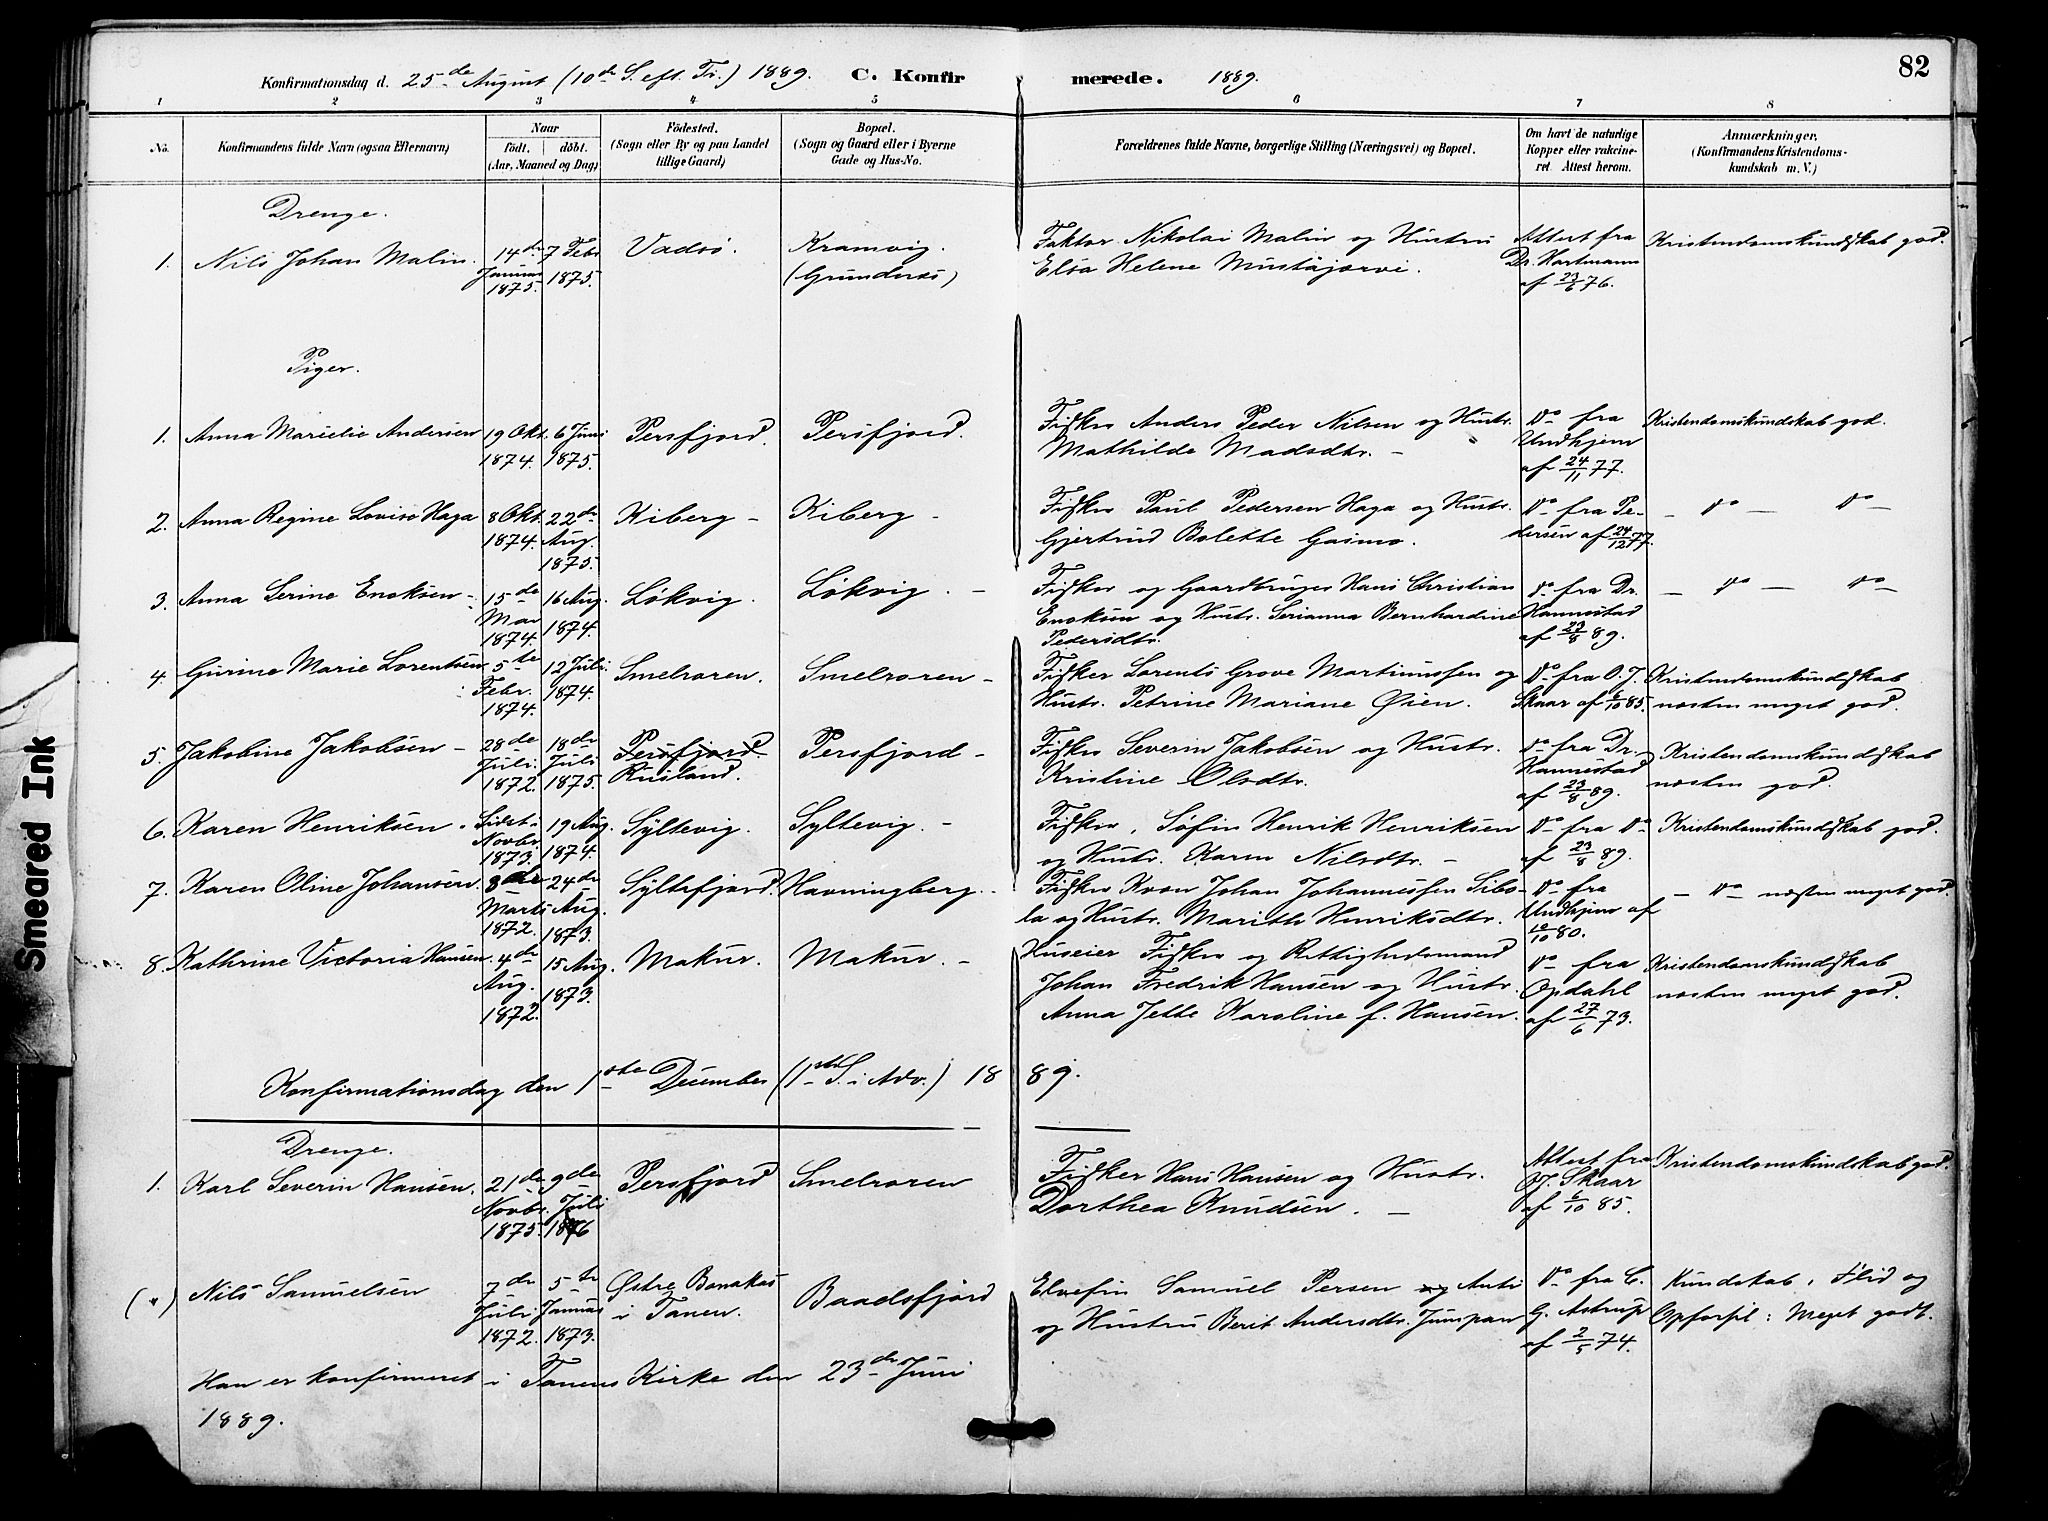 82
Konfirmationsdag d. 25de August (10de S. eft. Tr.) 1889. C. Konfirmerede. 1889.
1 2 3 4 5 6 7 8
No. Konfirmandens fulde Navn (ogsaa Efternavn)
Naar
födt. döbt.
(Aar, Maaned og Dag)
Födested.
(Sogn eller By og paa Landet
tillige Gaard)
Bopæl.
(Sogn og Gaard eller i Byerne
Gade og Hus-No.
Forældrenes fulde Navne, borgerlige Stilling (Næringsvei) og Bopæl.
Om havt de naturlige
Kopper eller vakcine-
ret. Attest herom.
Anmærkninger.
(Konfirmandens Kristendoms-
kundskab m. V.)
Drenge.
1. Nils Johan Malin.
14de
Januar
1875.
7 Febr
1875.
Vadsø.
Kramvig.
(Grundnæs)
Faktor Nikolai Malin og Hustru
Elsa Helene Mustajærvi.
Attest fra
Dr. Hartmann
af 23/6 76.
Kristendomskundskab god.
Piger.
1. Anna Marielie Andersen
19 Okt.
1874.
6 Juni
1875.
Persfjord.
Persfjord.
Fisker Anders Peder Nilsen og Hustr.
Mathilde Madsdtr. -
Do fra
Undhjem
af 24/11 77.
Kristendomskundskab god.
2. Anna Regine Lovise Haga
8 Okt.
1874.
22de
Aug.
1875.
Kiberg -
Kiberg -
Fisker Paul Pedersen Haga og Hustr.
Gjertrud Bolette Gaimo.
Do fra Pe-
dersen af 24/12 77.
- Do - Do -
3. Anna Serine Enoksen -
15de
Mar
1874.
16 Aug.
1874.
Løkvig.
Løkvig. -
Fisker og Gaardbruger Hans Christian
Enoksen og Hustr. Serianna Bernhardine
Pedersdtr.
Do fra Dr.
Kannestad
af 23/8 89.
- Do - Do -
4. Gurine Marie Lorentsen
5te
Febr.
1874.
12 Juli
1874.
Smelroren.
Smelroren -
Fisker Lorents Grove Martinussen og
Hustr. Petrine Mariane Øien.
Do fra O. J.
Skaar af 6/10 85.
Kristendomskundskab
næsten meget god.
5. Jakobine Jakobsen -
28de
Juli
1872.
18de
Juli
1875.
Persfjord.
Rusland.
Persfjord -
Fisker Severin Jakobsen og Hustr.
Kristine Olsdtr.
Do fra Dr.
Kannestad
af 23/8 89.
Kristendomskundskab
næsten god.
6. Karen Henriksen.
Sidst i
Novbr.
1873.
19 Aug.
1874.
Syltevig.
Syltevig. -
Fisker, Søfin Henrik Henriksen
og Hustr. Karen Nilsdtr. -
Do fra Do
af 23/8 89.
Kristendomskundskab god.
7. Karen Oline Johansen.
8de
Marts
1872.
24de
Aug.
1873.
Syltefjord.
Havningberg. -
Fisker Kvæn Johan Johannessen Sibo-
la og Hustr. Marith Henriksdtr.
Do fra
Undhjem af
10/10 80.
- Do næsten meget god.
8. Kathrine Victoria Hansen.
4de
Aug.
1872.
15 Aug.
1873.
Makur.
Makur. -
Huseier Fisker og Rettighedsmand
Johan Fredrik Hansen og Hustr.
Anna Jette Karoline f. Hansen.
Do fra
Opdahl
af 27/6 73.
Kristendomskundskab
næsten meget god.
Konfirmationsdag den 1ste December (1ste S. i Adv.) 1889.
Drenge.
1. Karl Severin Hansen.
21de
Novbr.
1875.
9de
Juli
1876
Persfjord
Smelroren
Fisker Hans Hansen og Hustr.
Dorthea Knudsen. -
Attest fra
O J. Skaar
af 6/10 85.
Kristendomskundskab god.
Nils Samuelsen
7de
Juli
1872.
5te
Januar
1873.
Østre Bonakas
i Tanen.
Baadsfjord
Elvefin Samuel Persen og Anti
og Hustru Berit Andersdtr. Juuspan
Do fra C.
G. Astrup
af 2/5 74.
Kundskab, Flid og
Opførsel: Meget godt.
Han er konfirmeret i Tanens Kirke den 23de Juni
1889.
Smeared Ink